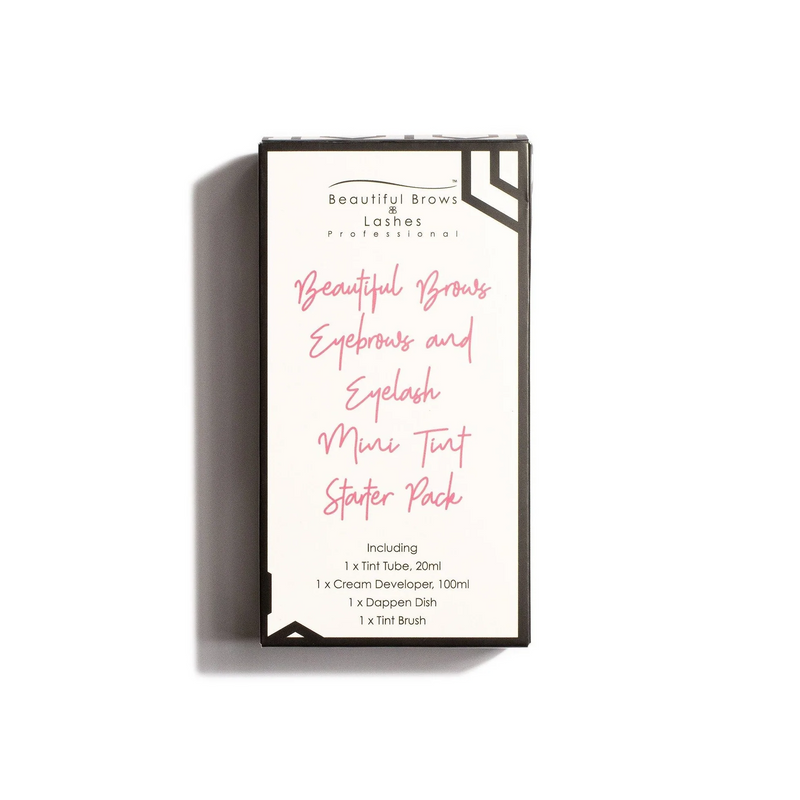 Beautiful Brows™
BB
Lashes
Professional
Beautiful Brows
Eyebrows and
Eyelash
Mini Tint
Starter Pack
Including
1 x Tint Tube, 20ml
1 x Cream Developer, 100ml
1 x Dappen Dish
1 x Tint Brush